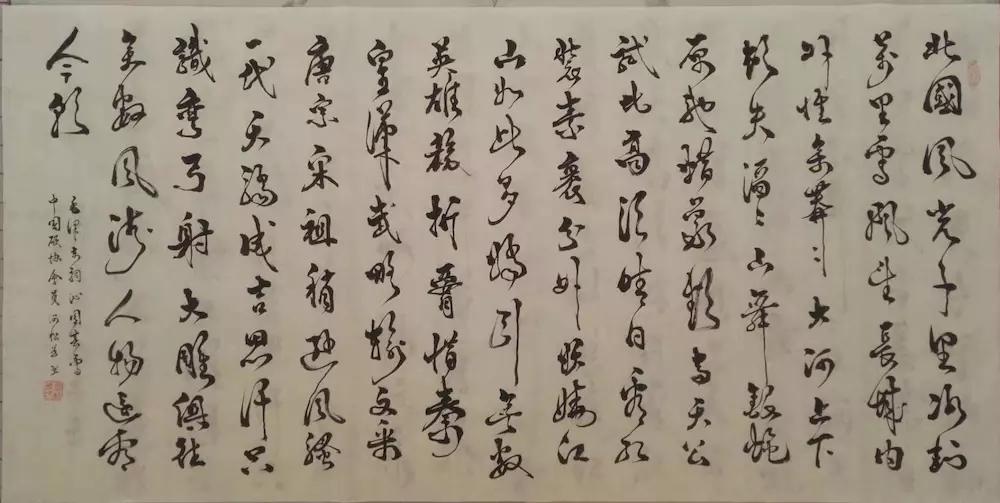 北國風光千里冰封
萬里雪飄望長城内
外惟余莽〻大河上下
頓失滔〻山舞銀蛇
原馳蜡象欲与天公
試比高須晴日看红
装素裹分外妖娆江
山如此多娇引无数
英雄競折腰惜秦
皇漢武略輸文采
唐宗宋祖稍逊风骚
一代天骄成吉思汗只
識彎弓射大雕俱往
矣数風流人物还看
今朝
毛澤東詞沁園春雪
中国硬协会员